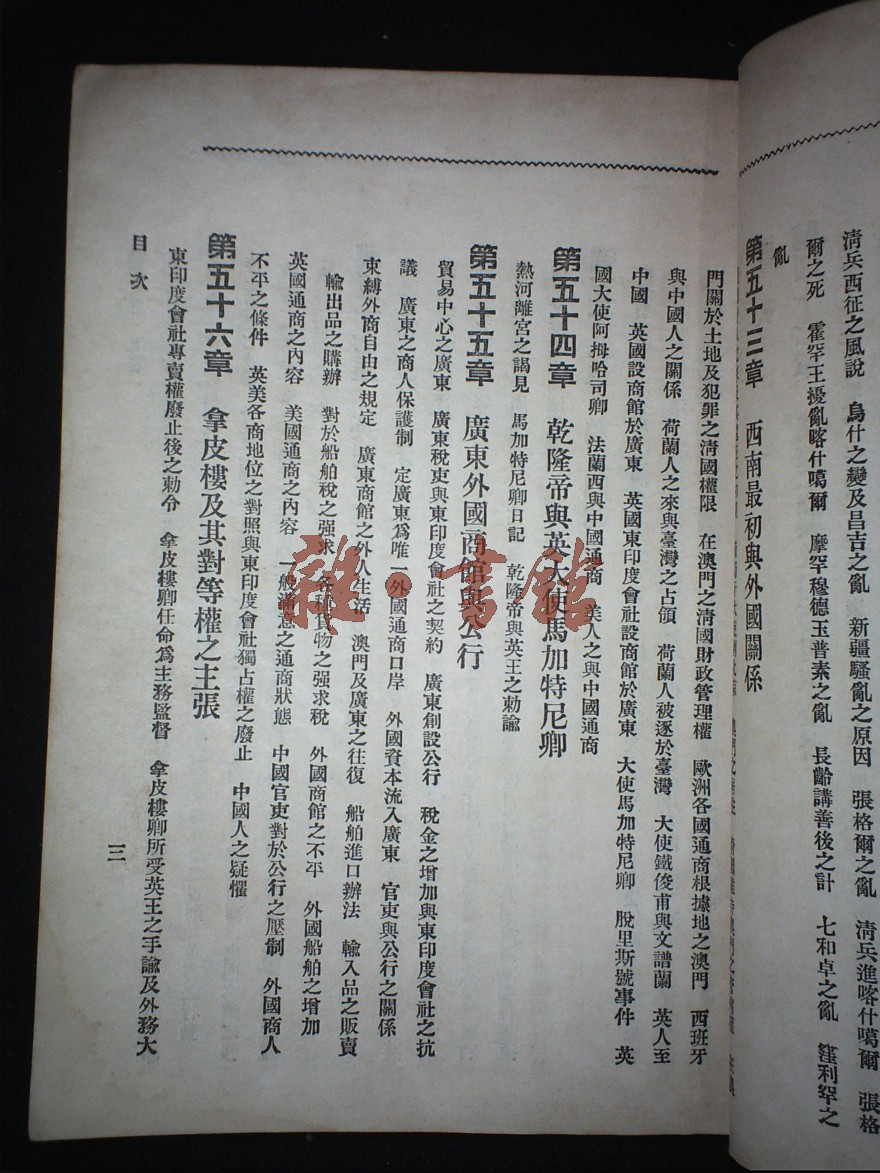 清兵西征之風說　烏什之變及昌吉之亂　新疆騷亂之原因　張格爾之亂　清兵進喀什噶爾　張格
爾之死　霍罕王擾亂喀什噶爾　摩罕穆德玉普素之亂　長齡講善後之計　七和卓之亂　窪利罕之
亂
第五十三章　西南最初與外國關係
門關於土地及犯罪之淸國權限　在澳門之淸國財政管理權　歐洲各國通商根據地之澳門　西班牙
與中國人之關係　荷蘭人之來與臺灣之占領　荷蘭人被逐於臺灣　大使鐵俊甫與文譜蘭　英人至
中國　英國設商館於廣東　英國東印度會社設商館於廣東　大使馬加特尼卿　脫里斯號事件　英
國大使阿拇哈司卿　法蘭西與中國通商　美人之與中國通商
第五十四章　乾隆帝與英大使馬加特尼卿
熱河離宮之謁見　馬加特尼卿日記　乾隆帝與英王之勅諭
第五十五章　廣東外國商館與公行
貿易中心之廣東　廣東稅吏與東印度會社之契約　廣東創設公行　稅金之增加與東印度會社之抗
議　廣東之商人保護制　定廣東爲唯一外國通商口岸　外國資本流入廣東　官吏與公行之關係
束縛外商自由之規定　廣東商館之外人生活　澳門及廣東之往復　船舶進口辦法　輸入品之販賣
輸出品之購辦　對於船舶稅之强求　各種貨物之强求稅　外國商館之不平　外國船舶之增加
英國通商之內容　美國通商之內容　一般滿意之通商狀態　中國官吏對於公行之壓制　外國商人
不平之條件　英美各商地位之對照與東印度會社獨占權之廢止　中國人之疑懼
第五十六章　拿皮樓及其對等權之主張
東印度會社專賣權廢止後之勅令　拿皮樓卿任命爲主務監督　拿皮樓卿所受英王之手諭及外務大
目次
三
雜·書館